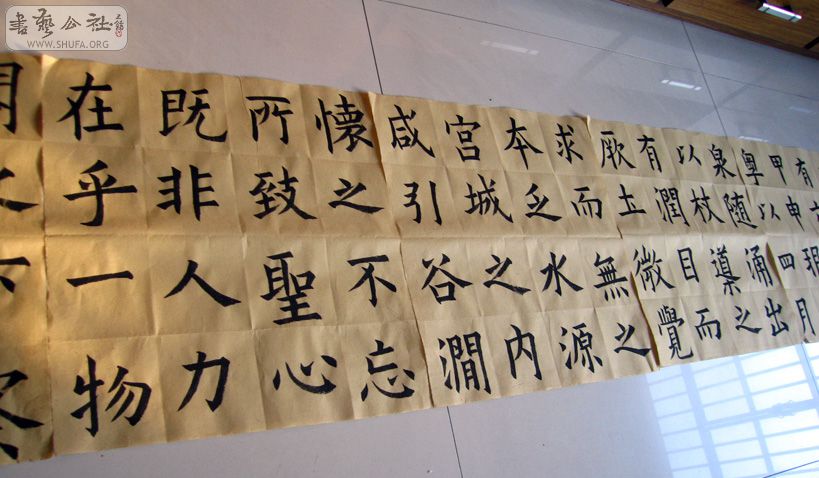 在乎一物
既非人力
所致聖心
懷之不忘
咸引谷澗
宮城之內
本乏水源
求而無之
厥土微覺
有潤因而
以杖導之
泉隨涌出
粵以四月
甲申
有
書藝公社
WWW.SHUFA.ORG